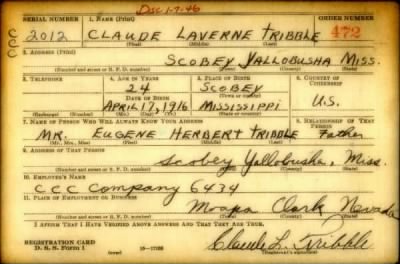 Dsc 1-7-46
SERIAL NUMBER 1. NAME (Print) ORDER NUMBER
CCC 2012 CLAUDE LAVERNE TRIBBLE 472
(First) (Middle) (Last)
2. ADDRESS (Print)
SCOBEY YALLOBUSHA MISS.
(Number and street or R. F. D. number) (Town) (County) (State)
3. TELEPHONE 4. AGE IN YEARS 5. PLACE OF BIRTH 6. COUNTRY OF CITIZENSHIP
24 SCOBEY
DATE OF BIRTH (Town or county)
APRIL 17, 1916 MISSISSIPPI U.S.
(Exchange) (Number) (Mo.) (Day) (Yr.) (State or country)
7. NAME OF PERSON WHO WILL ALWAYS KNOW YOUR ADDRESS 8. RELATIONSHIP OF THAT PERSON
MR. EUGENE HERBERT TRIBBLE Father
(Mr., Mrs., Miss) (First) (Middle) (Last)
9. ADDRESS OF THAT PERSON
Scobey Yallobusha, Miss.
(Number and street or R. F. D. number) (Town) (County) (State)
10. EMPLOYER'S NAME
CCC Company 6434
11. PLACE OF EMPLOYMENT OR BUSINESS
Moapa Clark Nevada
(Number and street or R. F. D. number) (Town) (County) (State)
I AFFIRM THAT I HAVE VERIFIED ABOVE ANSWERS AND THAT THEY ARE TRUE.
REGISTRATION CARD
D. S. S. Form 1 (over) Claude L. Tribble
(Registrant's signature)